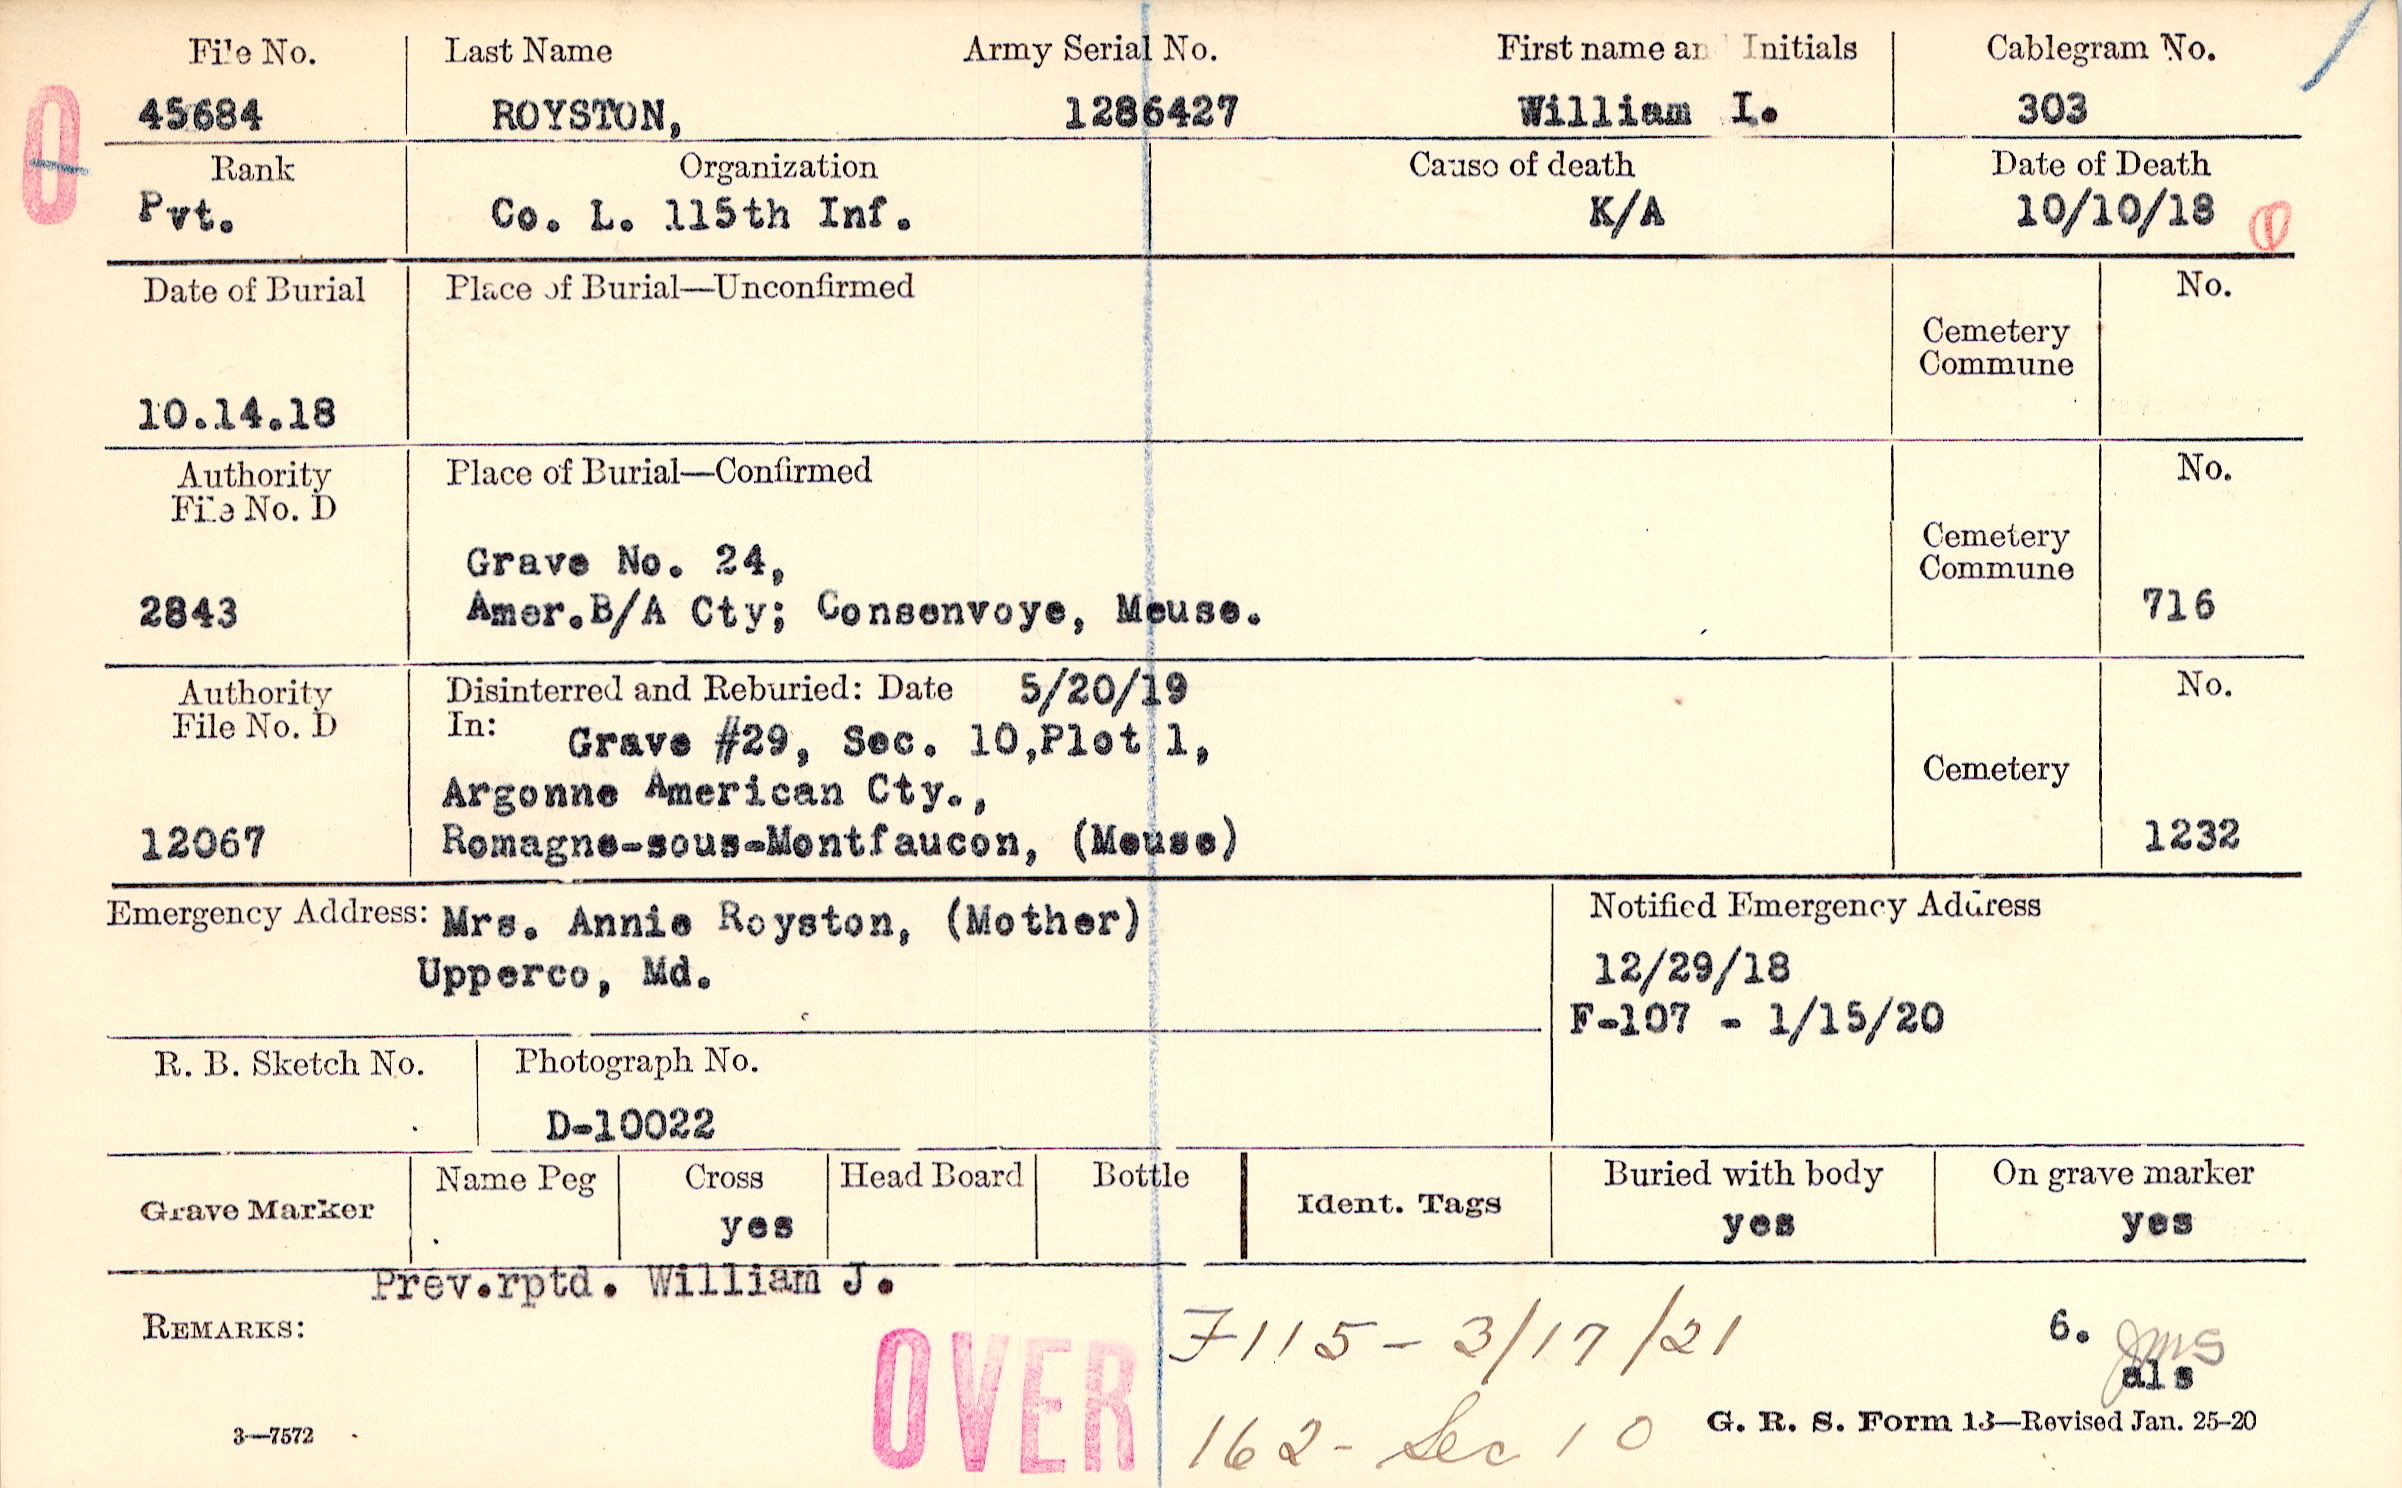 File No. Last Name Army Serial No. First name an Initials Cablegram No.
0 45684 ROYSTON, 1286427 William I. 303
Rank Organization Cause of death Date of Death
Pvt. Co. L. 115th Inf. K/A 10/10/18
Date of Burial Place of Burial—Unconfirmed No.
Cemetery
Commune
10.14.18
Authority Place of Burial—Confirmed No.
File No. D
Cemetery
Commune
Grave No. 24,
2843 Amer.B/A Cty; Consenvoye, Meuse. 716
Authority Disinterred and Reburied: Date 5/20/19 No.
File No. D In: Grave #29, Sec. 10,Plot 1,
Cemetery
Argonne American Cty.,
12067 Romagne-sous-Montfaucon, (Meuse) 1232
Emergency Address: Mrs. Annie Royston, (Mother) Notified Emergency Address
Upperco, Md. 12/29/18
F-107 - 1/15/20
R. B. Sketch No. Photograph No.
D-10022
Grave Marker Name Peg Cross Head Board Bottle Ident. Tags Buried with body On grave marker
yes yes yes
Prev.rptd. William J.
REMARKS: F115 - 3/17/21 6. JMS
OVER als
3—7572 162 - Sec 10 G. R. S. Form 13—Revised Jan. 25-20